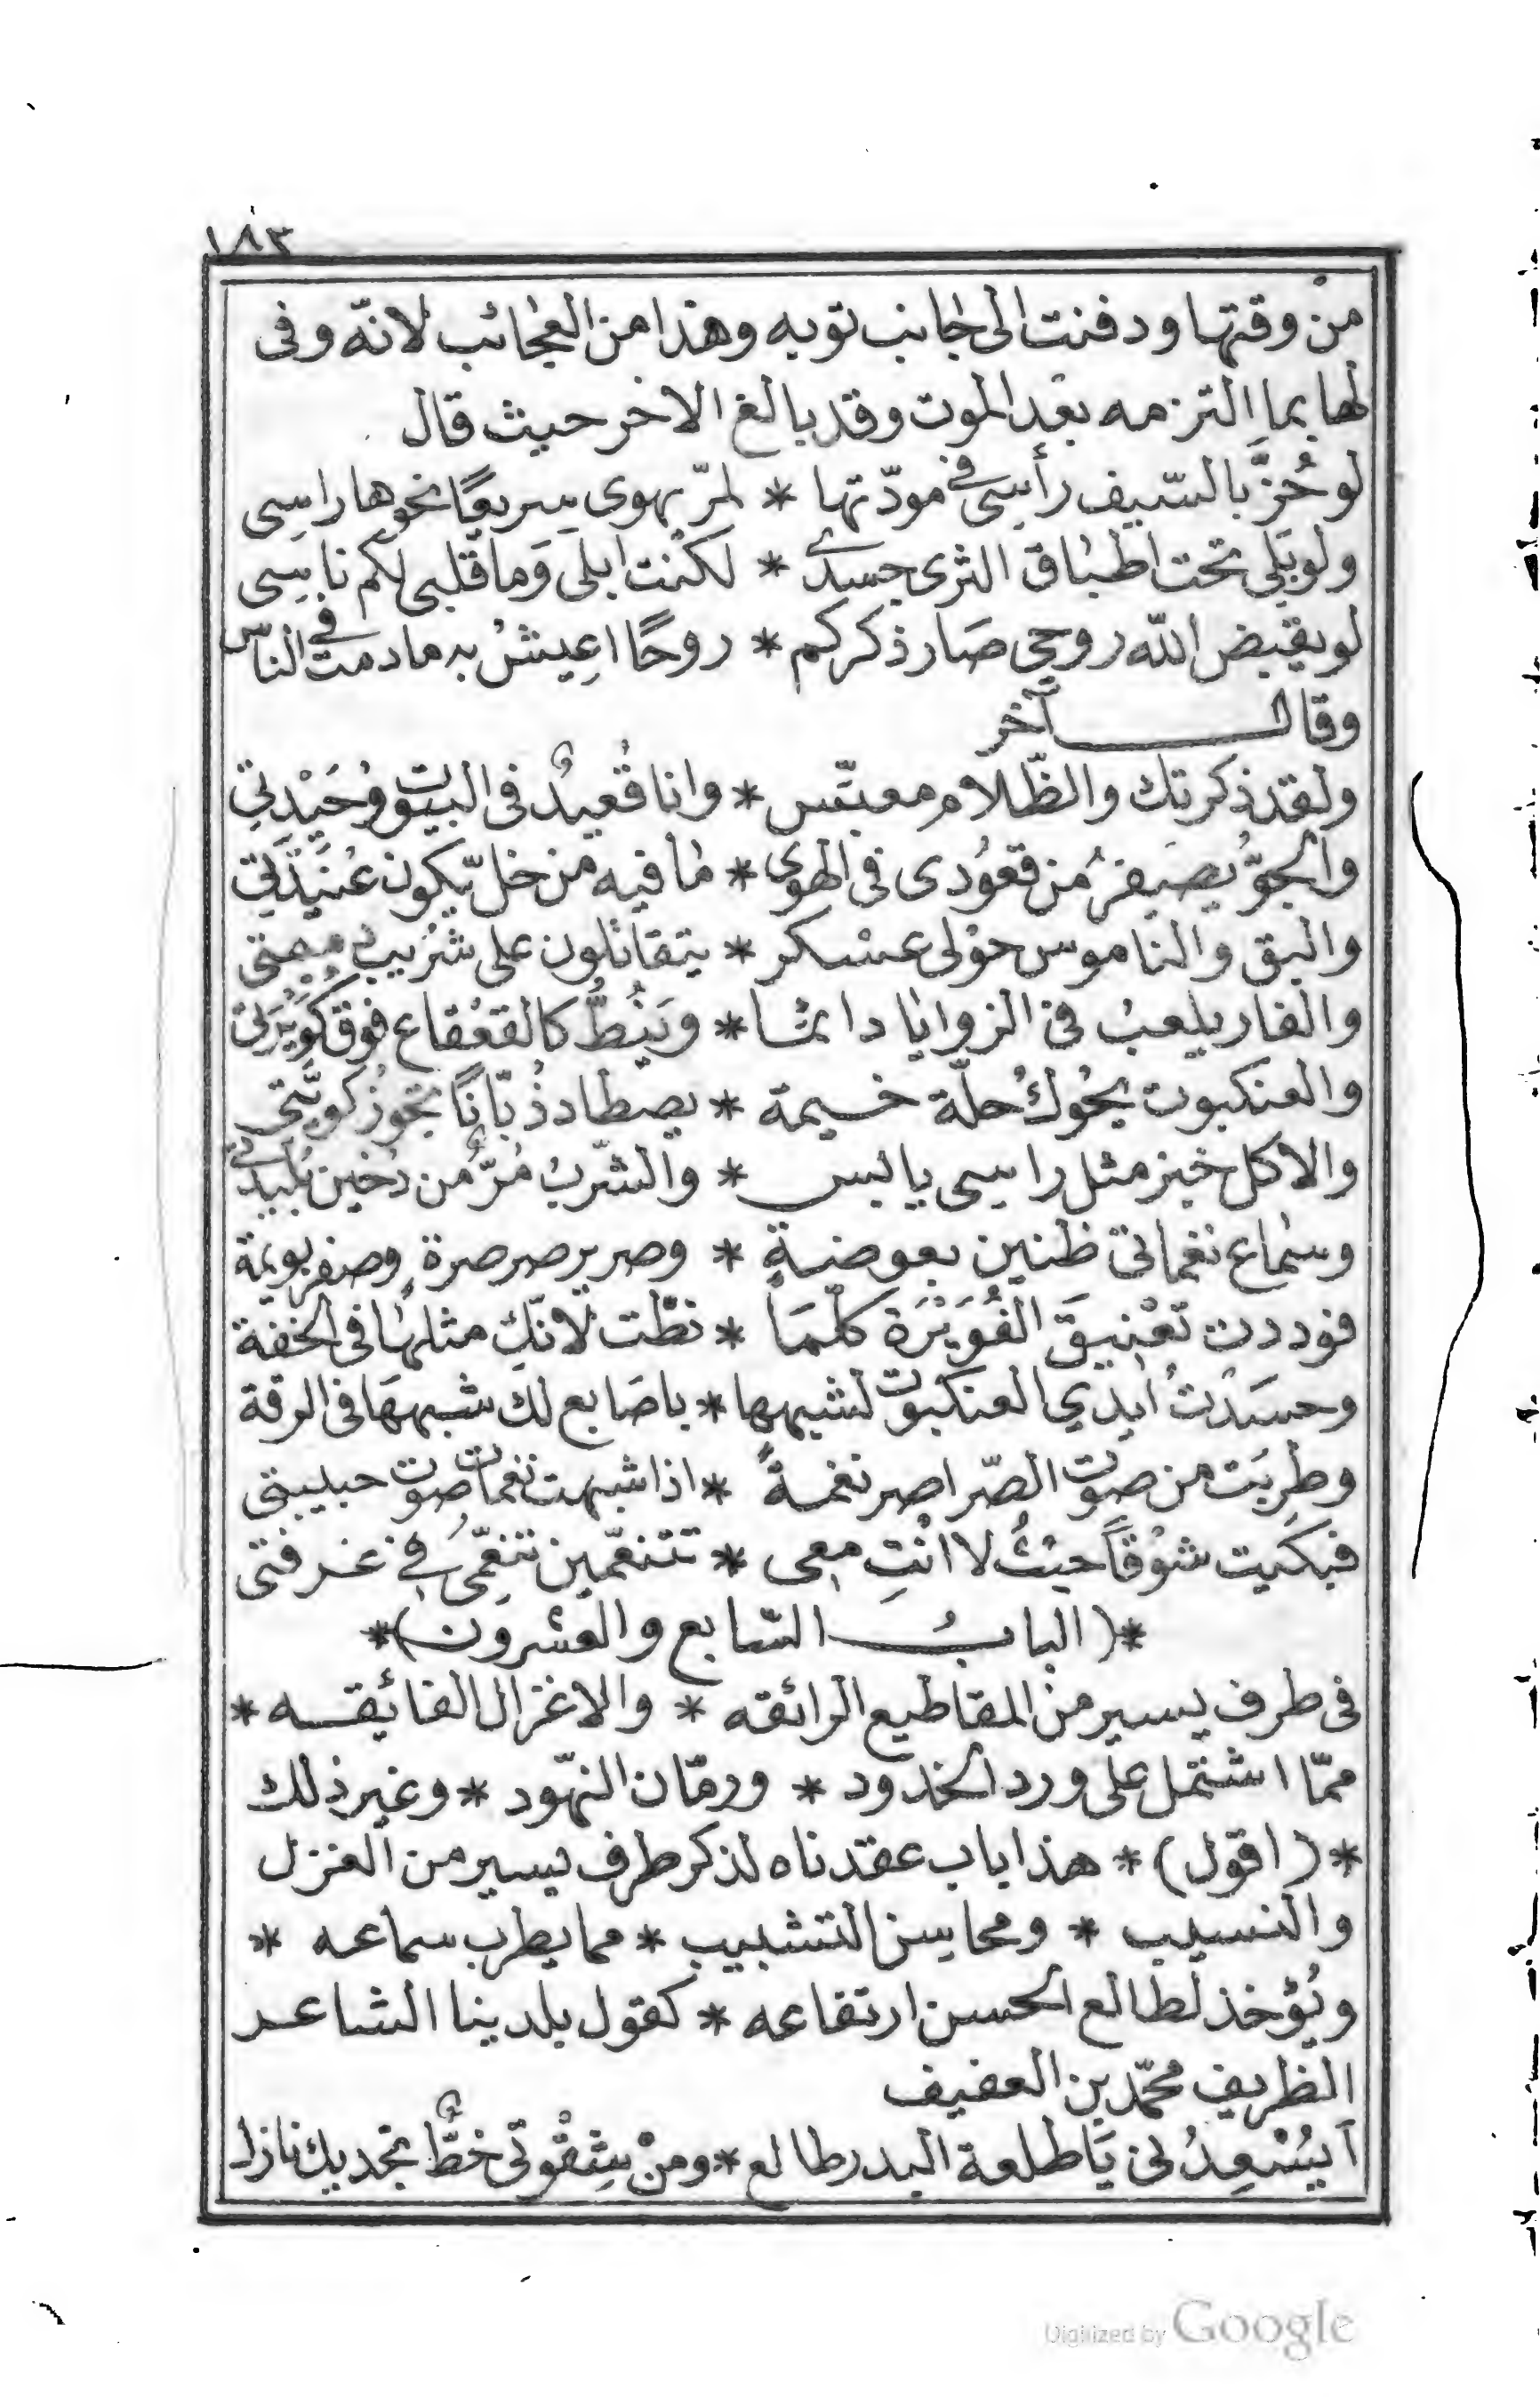 ١٨٣
من وقتها ودفنت الى جانب توبه وهذا من العجائب لانّه وفى
لها بما التزمه بعد الموت وقد بالغ الاخر حيث قال
لو حُزَّ بالسّيف رأسى فى مودّتها * لمرّ يهوى سريعًا نحوها راسِى
ولو بَلِى تحت اطباق الثرى جسدى * لكنت ابلى وَما قلبى لكم ناسِى
لو يقبض اللّه روحى صَار ذكركم * روحًا اعِيشُ به ما دمت فى الناس
وقال آخر
ولقد ذكرتك والظّلام معبّس * وانا قُعيدٌ فى البيت وُحَيْدتى
والجوّ يصفرُ من قعُودى فى الهوى * ما فيه من خلّ يكون عُنَيْدَتى
والبق والناموس حوْلى عسْكر * يتقاتلون على شرَيب مهجتى
والفار يلعبُ فى الزوايا دائما * ويَنُطُّ كالقعْقاع فوق كُوَيْرَتى
والعنكبوت يحُوكُ حلّة خيمة * يصطاد ذُبّانًا تجوز كويّتى
والاكل خبز مثل راسى يابس * والشّربُ مُرٌّ من دُخين بُليدتى
وسماع نغماتى طنين بعوضةٍ * وصرير صرصرة وصفر بويمة
فوددت تعْنيقَ الفُوَيْرَة كلّمَا * نطّت لانّكِ مثلها فى الخفة
وحسَدْتُ ايدي العنكبوت لشبهها * باصَابع لك شبههَا فى الرقة
وطرِبَت من صوت الصّراصر نغمةً * اذا شبهت نغمات صوت حبيبتى
فبكيت شوْقًا حيْثُ لا انْتِ معِى * تتنغّمين تنغّمِى فى غرفتى
*(البابُ السّابع والعشرون)*
فى طرف يسير من المقاطيع الرائقه * والاغزال الفائيقه *
ممّا اشتمل على ورد الخدود * ورمّان النهّود * وغير ذلك
*(اقول)* هذا باب عقدناه لذكر طرف يسير من الغزل
والنسيب * ومحاسن التشبيب * مما يطرب سماعه *
ويُؤخذ لطالع الحسن ارتفاعه * كقول بلدينا الشاعر
الظريف محمّد بن العفيف
آيسُعِدُ لى يَا طلعة البدر طالع * ومنْ شِقْوتى خطٌّ بخديك نازل
Digitized by Google